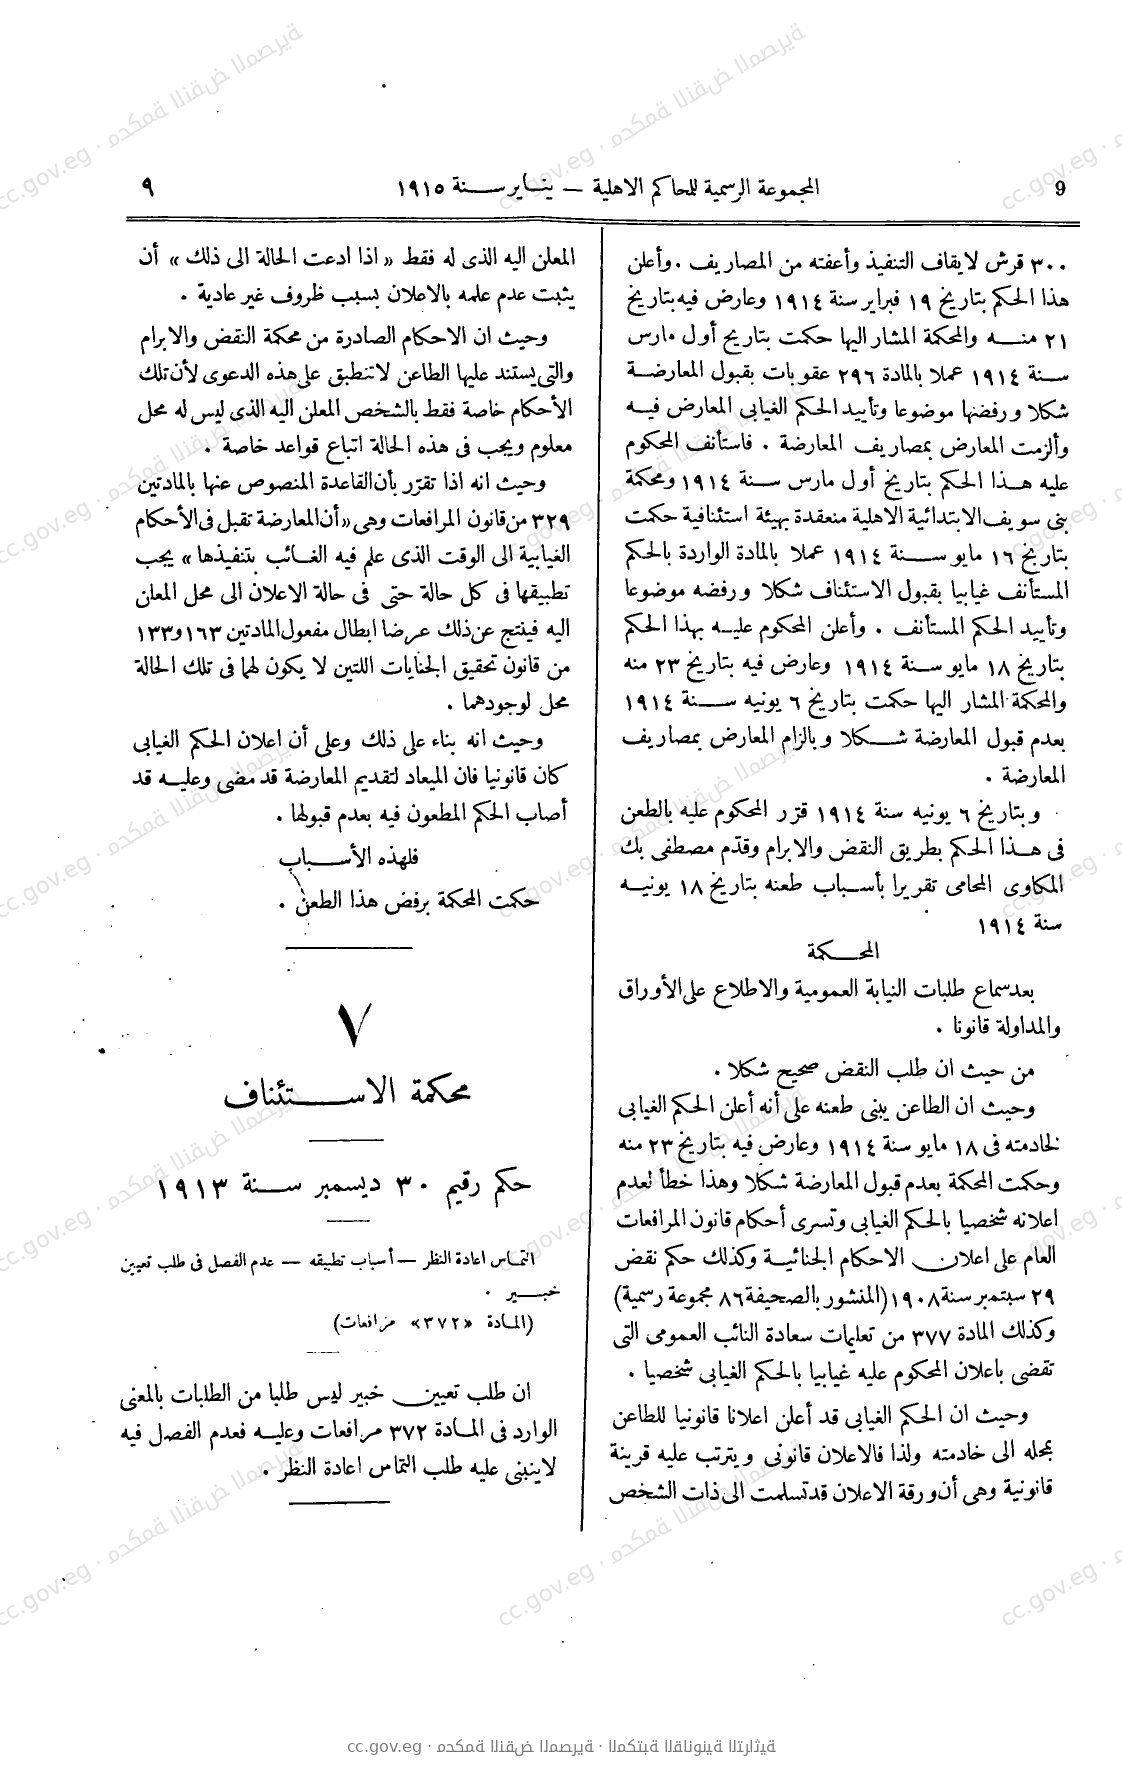 9
المجموعة الرسمية للمحاكم الاهلية — ينـاير سـنة ١٩١٥
٩
٣٠٠ قرش لايقاف التنفيذ وأعفته من المصاريف . وأعلن
هذا الحكم بتاريخ ١٩ فبراير سنة ١٩١٤ وعارض فيه بتاريخ
٢١ منـه والمحكمة المشار اليها حكمت بتاريخ أول مارس
سـنة ١٩١٤ عملا بالمادة ٢٩٦ عقوبات بقبول المعارضـة
شكلا ورفضها موضوعا وتأييد الحكم الغيابى المعارض فيـه
وألزمت المعارض بمصاريف المعارضة . فاستأنف المحكوم
عليه هـذا الحكم بتاريخ أول مارس سـنة ١٩١٤ ومحكمة
بنى سويف الابتدائية الاهلية منعقدة بهيئة استئنافية حكمت
بتاريخ ١٦ مايو سـنة ١٩١٤ عملا بالمادة الواردة بالحكم
المستأنف غيابيا بقبول الاستئناف شكلا ورفضه موضوعا
وتأييد الحكم المستأنف . وأعلن المحكوم عليـه بهذا الحكم
بتاريخ ١٨ مايو سـنة ١٩١٤ وعارض فيه بتاريخ ٢٣ منه
والمحكمة المشار اليها حكمت بتاريخ ٦ يونيه سـنة ١٩١٤
بعدم قبول المعارضة شـكلا وبالزام المعارض بمصاريف
المعارضة .
وبتاريخ ٦ يونيه سنة ١٩١٤ قرّر المحكوم عليه بالطعن
فى هـذا الحكم بطريق النقض والابرام وقدّم مصطفى بك
المكاوى المحامى تقريرا بأسـباب طعنه بتاريخ ١٨ يونيـه
سنة ١٩١٤
المحـكمة
بعد سماع طلبات النيابة العمومية والاطلاع على الأوراق
والمداولة قانونا .
من حيث ان طلب النقض صحيح شكلا .
وحيث ان الطاعن يبنى طعنه على أنه أعلن الحكم الغيابى
لخادمته فى ١٨ مايو سنة ١٩١٤ وعارض فيه بتاريخ ٢٣ منه
وحكمت المحكمة بعدم قبول المعارضة شكلا وهذا خطأ لعدم
اعلانه شخصيا بالحكم الغيابى وتسرى أحكام قانون المرافعات
العام على اعلان الاحكام الجنائيـة وكذلك حكم نقض
٢٩ سبتمبر سنة ١٩٠٨ (المنشور بالصحيفة ٨٦ مجموعة رسمية)
وكذلك المادة ٣٧٧ من تعليمات سعادة النائب العمومى التى
تقضى باعلان المحكوم عليه غيابيا بالحكم الغيابى شخصيا .
وحيث ان الحكم الغيابى قد أعلن اعلانا قانونيا للطاعن
بمحله الى خادمته ولذا فالاعلان قانونى ويترتب عليه قرينة
قانونية وهى أن ورقة الاعلان قد تسلمت الى ذات الشخص
المعلن اليه الذى له فقط «اذا ادعت الحالة الى ذلك» أن
يثبت عدم علمه بالاعلان بسبب ظروف غير عادية .
وحيث ان الاحكام الصادرة من محكمة النقض والابرام
والتى يستند عليها الطاعن لا تنطبق على هذه الدعوى لأن تلك
الأحكام خاصة فقط بالشخص المعلن اليه الذى ليس له محل
معلوم ويجب فى هذه الحالة اتباع قواعد خاصة .
وحيث انه اذا تقرّر بأن القاعدة المنصوص عنها بالمادتين
٣٢٩ من قانون المرافعات وهى «أن المعارضة تقبل فى الأحكام
الغيابية الى الوقت الذى علم فيه الغـائب بتنفيذها» يجب
تطبيقها فى كل حالة حتى فى حالة الاعلان الى محل المعلن
اليه فينتج عن ذلك عرضا ابطال مفعول المادتين ١٦٣ و١٣٣
من قانون تحقيق الجنايات اللتين لا يكون لهما فى تلك الحالة
محل لوجودهما .
وحيث انه بناء على ذلك وعلى أن اعلان الحكم الغيابى
كان قانونيا فان الميعاد لتقديم المعارضة قد مضى وعليـه قد
أصاب الحكم المطعون فيه بعدم قبولها .
فلهذه الأسـباب
حكمت المحكمة برفض هذا الطعن .
٧
محكمة الاسـتئناف
حكم رقيم ٣٠ ديسمبر سـنة ١٩١٣
التماس اعادة النظر — أسباب تطبيقه — عدم الفصل فى طلب تعيين
خبـير .
(المـادة «٣٧٢» مرافعات)
ان طلب تعيين خبير ليس طلبا من الطلبات بالمعنى
الوارد فى المـادة ٣٧٢ مرافعات وعليـه فعدم الفصل فيه
لا ينبنى عليه طلب التماس اعادة النظر .
cc.gov.eg · محكمة النقض المصرية · المكتبة القانونية التراثية